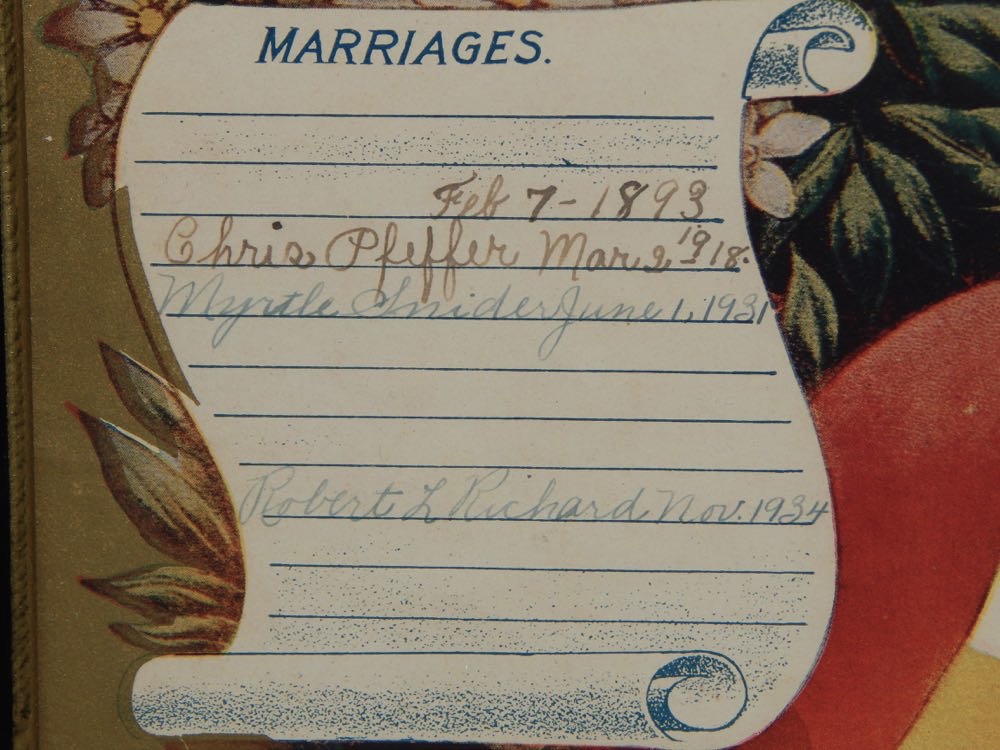 MARRIAGES.
Feb 7 - 1893
Chris Pfeffer Mar 2 1918.
Myrtle Snider June 1, 1931
Robert L Richard Nov. 1934